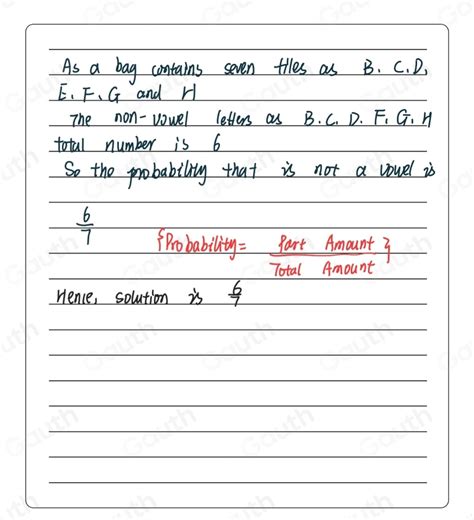 As a bag contains seven tiles as B. C. D,
E. F. G and H
The non-vowel letters as B. C. D. F. G. H
total number is 6
So the probability that is not a vowel is
6
7
{Probability = Part Amount }
Total Amount
Hence, solution is 6
7